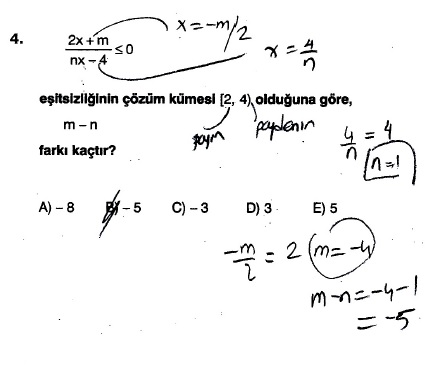 4. (2x + m)/(nx - 4) ≤ 0
x = -m/2
x = 4/n
eşitsizliğinin çözüm kümesi [2, 4) olduğuna göre,
payın paydenın
m – n
farkı kaçtır?
4/n = 4
n=1
A) – 8 B) – 5 C) – 3 D) 3 E) 5
-m/2 = 2 m=-4
m-n=-4-1
= -5